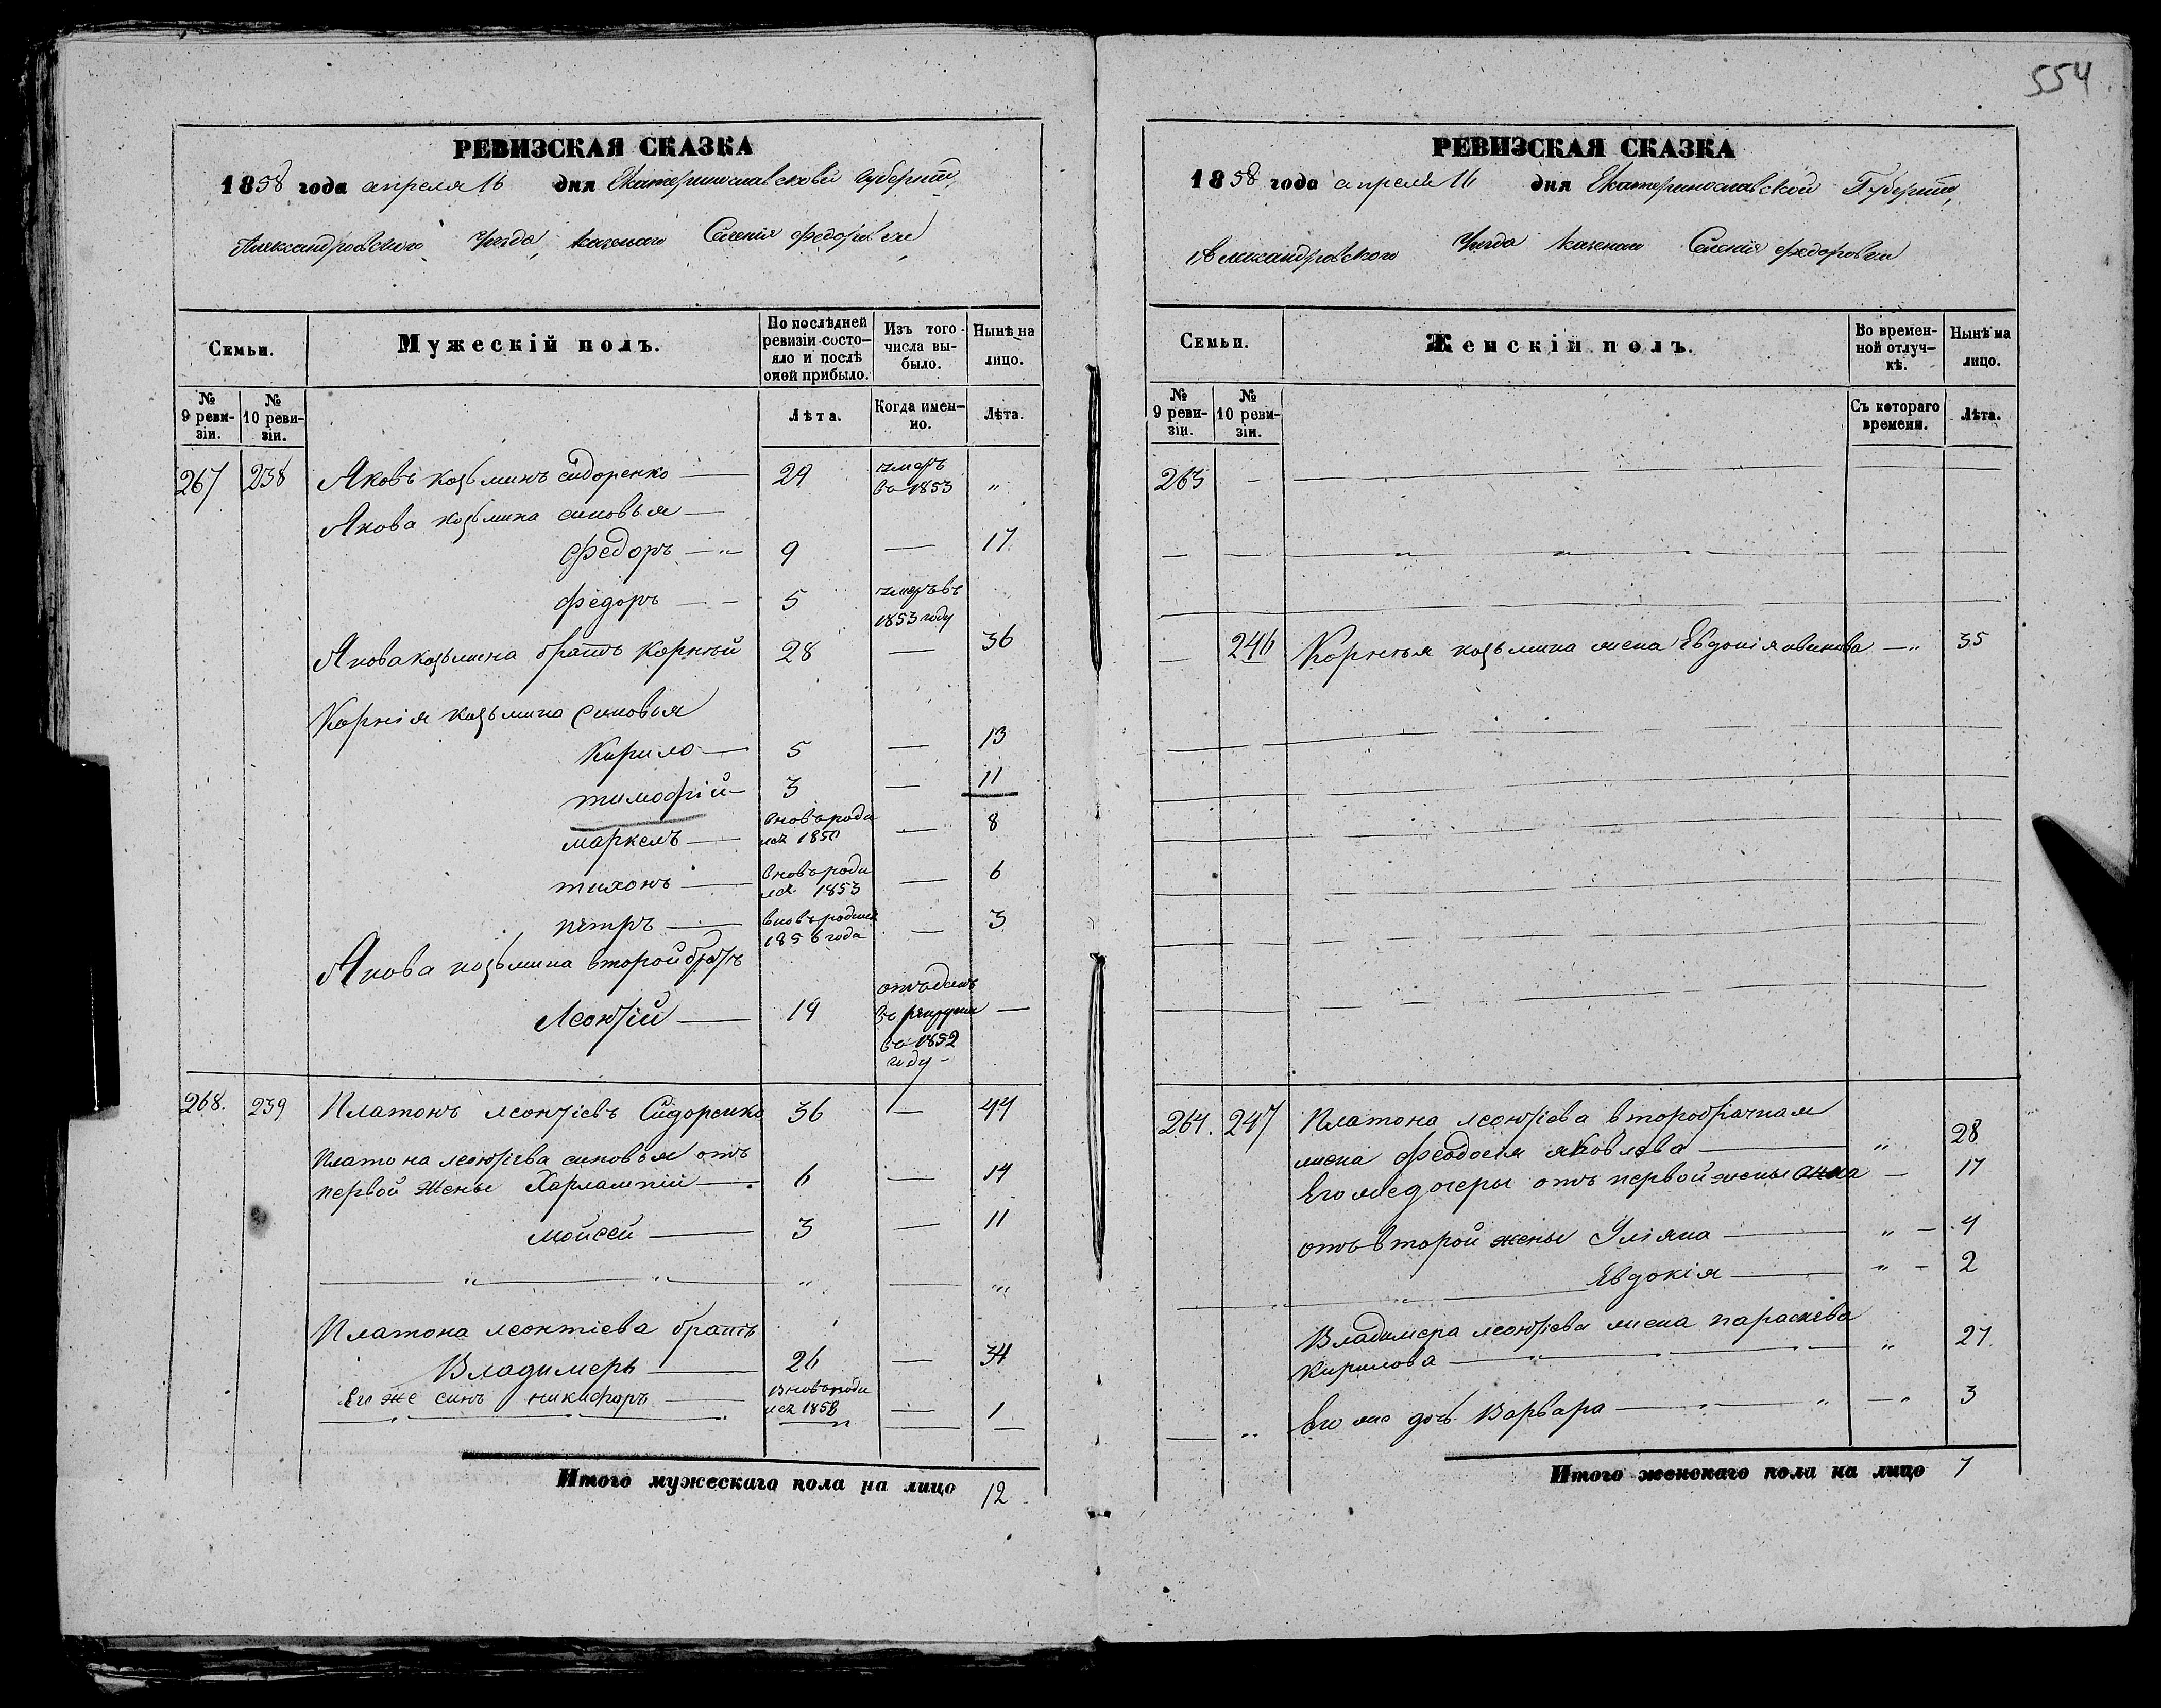 554
РЕВИЗСКАЯ СКАЗКА
1858 года апреля 16 дня Екатеринославской губернии,
Александровского Уезда, казенаго Селенія Федоровки
Семьи. Мужескій полъ. По послѣдней ревизіи состояло и послѣ оной прибыло. Изъ того числа выбыло. Нынѣ на лицо.
№ 9 ревизіи. № 10 ревизіи. Лѣта. Когда именно. Лѣта.
267 238 Яковъ козьминъ сидоренко — 29 умеръ въ 1853 "
Якова козьмина сыновья —
Федоръ — " 9 — 17
Федоръ — 5 умеръ въ 1853 году
Якова козьмина братъ Корній 28 — 36
Корнія козьмина Сыновья
Кирило — 5 — 13
тимофій — 3 — 11
маркелъ — вновь родился 1850 — 8
тихонъ — вновь родился 1853 — 6
петръ — вновь родился 1856 года — 3
Якова козьмина второй братъ
Леонтій — 19 отъданъ въ рекруты въ 1852 году —
268. 239 Платонъ леонтіевъ Сидоренко 36 — 44
Платона леонтіева сыновья отъ
первой Жены Харлампій — 6 — 14
мойсей — 3 — 11
Платона леонтіева братъ
Владимеръ — 26 — 34
Его же синъ никифоръ — Вновь родился 1858 — 1
Итого мужескаго пола на лицо 12
РЕВИЗСКАЯ СКАЗКА
1858 года апреля 16 дня Екатеринославской Губерніи,
Александровского Уезда казенаго Селенія федоровки
Семьи. Женскій полъ. Во временной отлучкѣ. Нынѣ на лицо.
№ 9 ревизіи. № 10 ревизіи. Съ котораго времени. Лѣта.
263 —
246 Корнія козьмина жена Евдокія — " 35
264. 247 Платона леонтіева второбрачная
жена Феодосія яковлева — " 28
Его же дочеры отъ первой жены анна — 17
отъ второй жены Уліяна — " — 4
Евдокія — " — 2
Владимера леонтіева жена параскева
кирилова — " 27.
Его же дочь Варвара — " 3
Итого женскаго пола на лицо 7